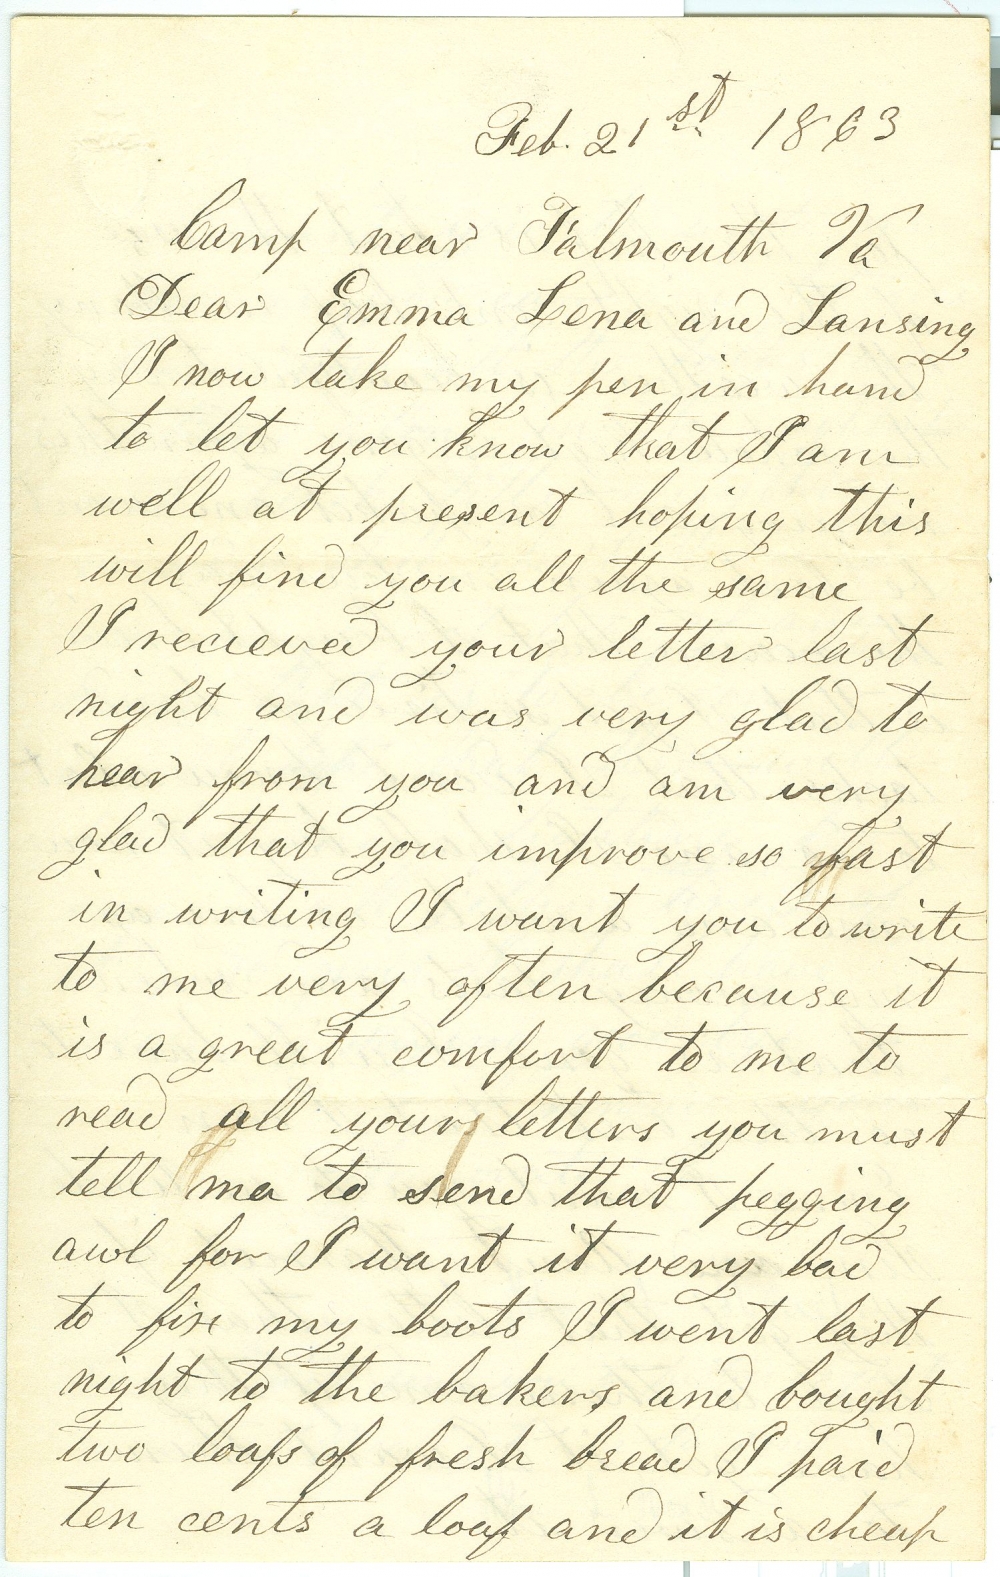 Feb. 21st 1863
Camp near Falmouth Va
Dear Emma Lena and Lansing
I now take my pen in hand
to let you know that I am
well at present hoping this
will find you all the same
I recieved your letter last
night and was very glad to
hear from you and am very
glad that you improve so fast
in writing I want you to write
to me very often because it
is a great comfort to me to
read all yours letters you must
tell ma to send that pegging
awl for I want it very bad
to fix my boots I went last
night to the bakers and bought
two loafs of fresh bread I paid
ten cents a loaf and it is cheap